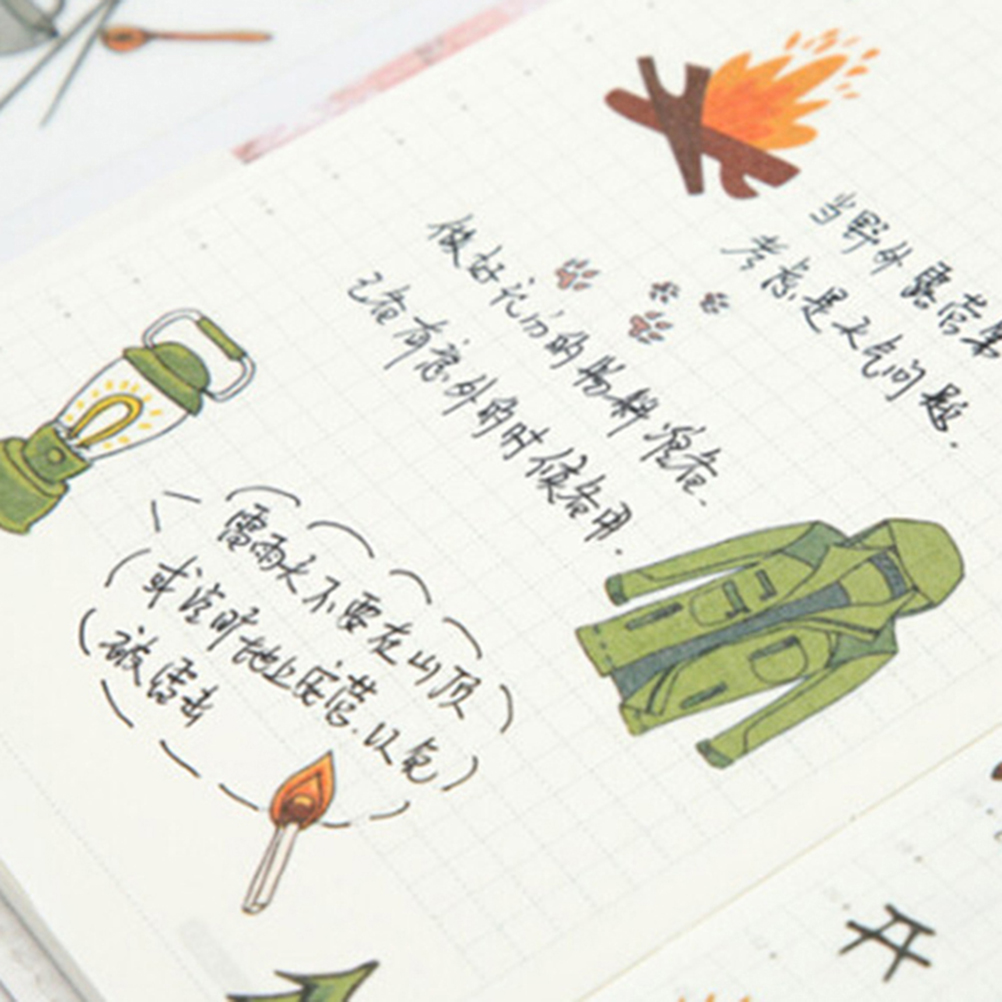 当野外露营第
考虑是天气问题.
做好充分的物料准备.
已备有意外的时候备用.
雷雨天不要在山顶
或空旷地上露营.以免
被雷击